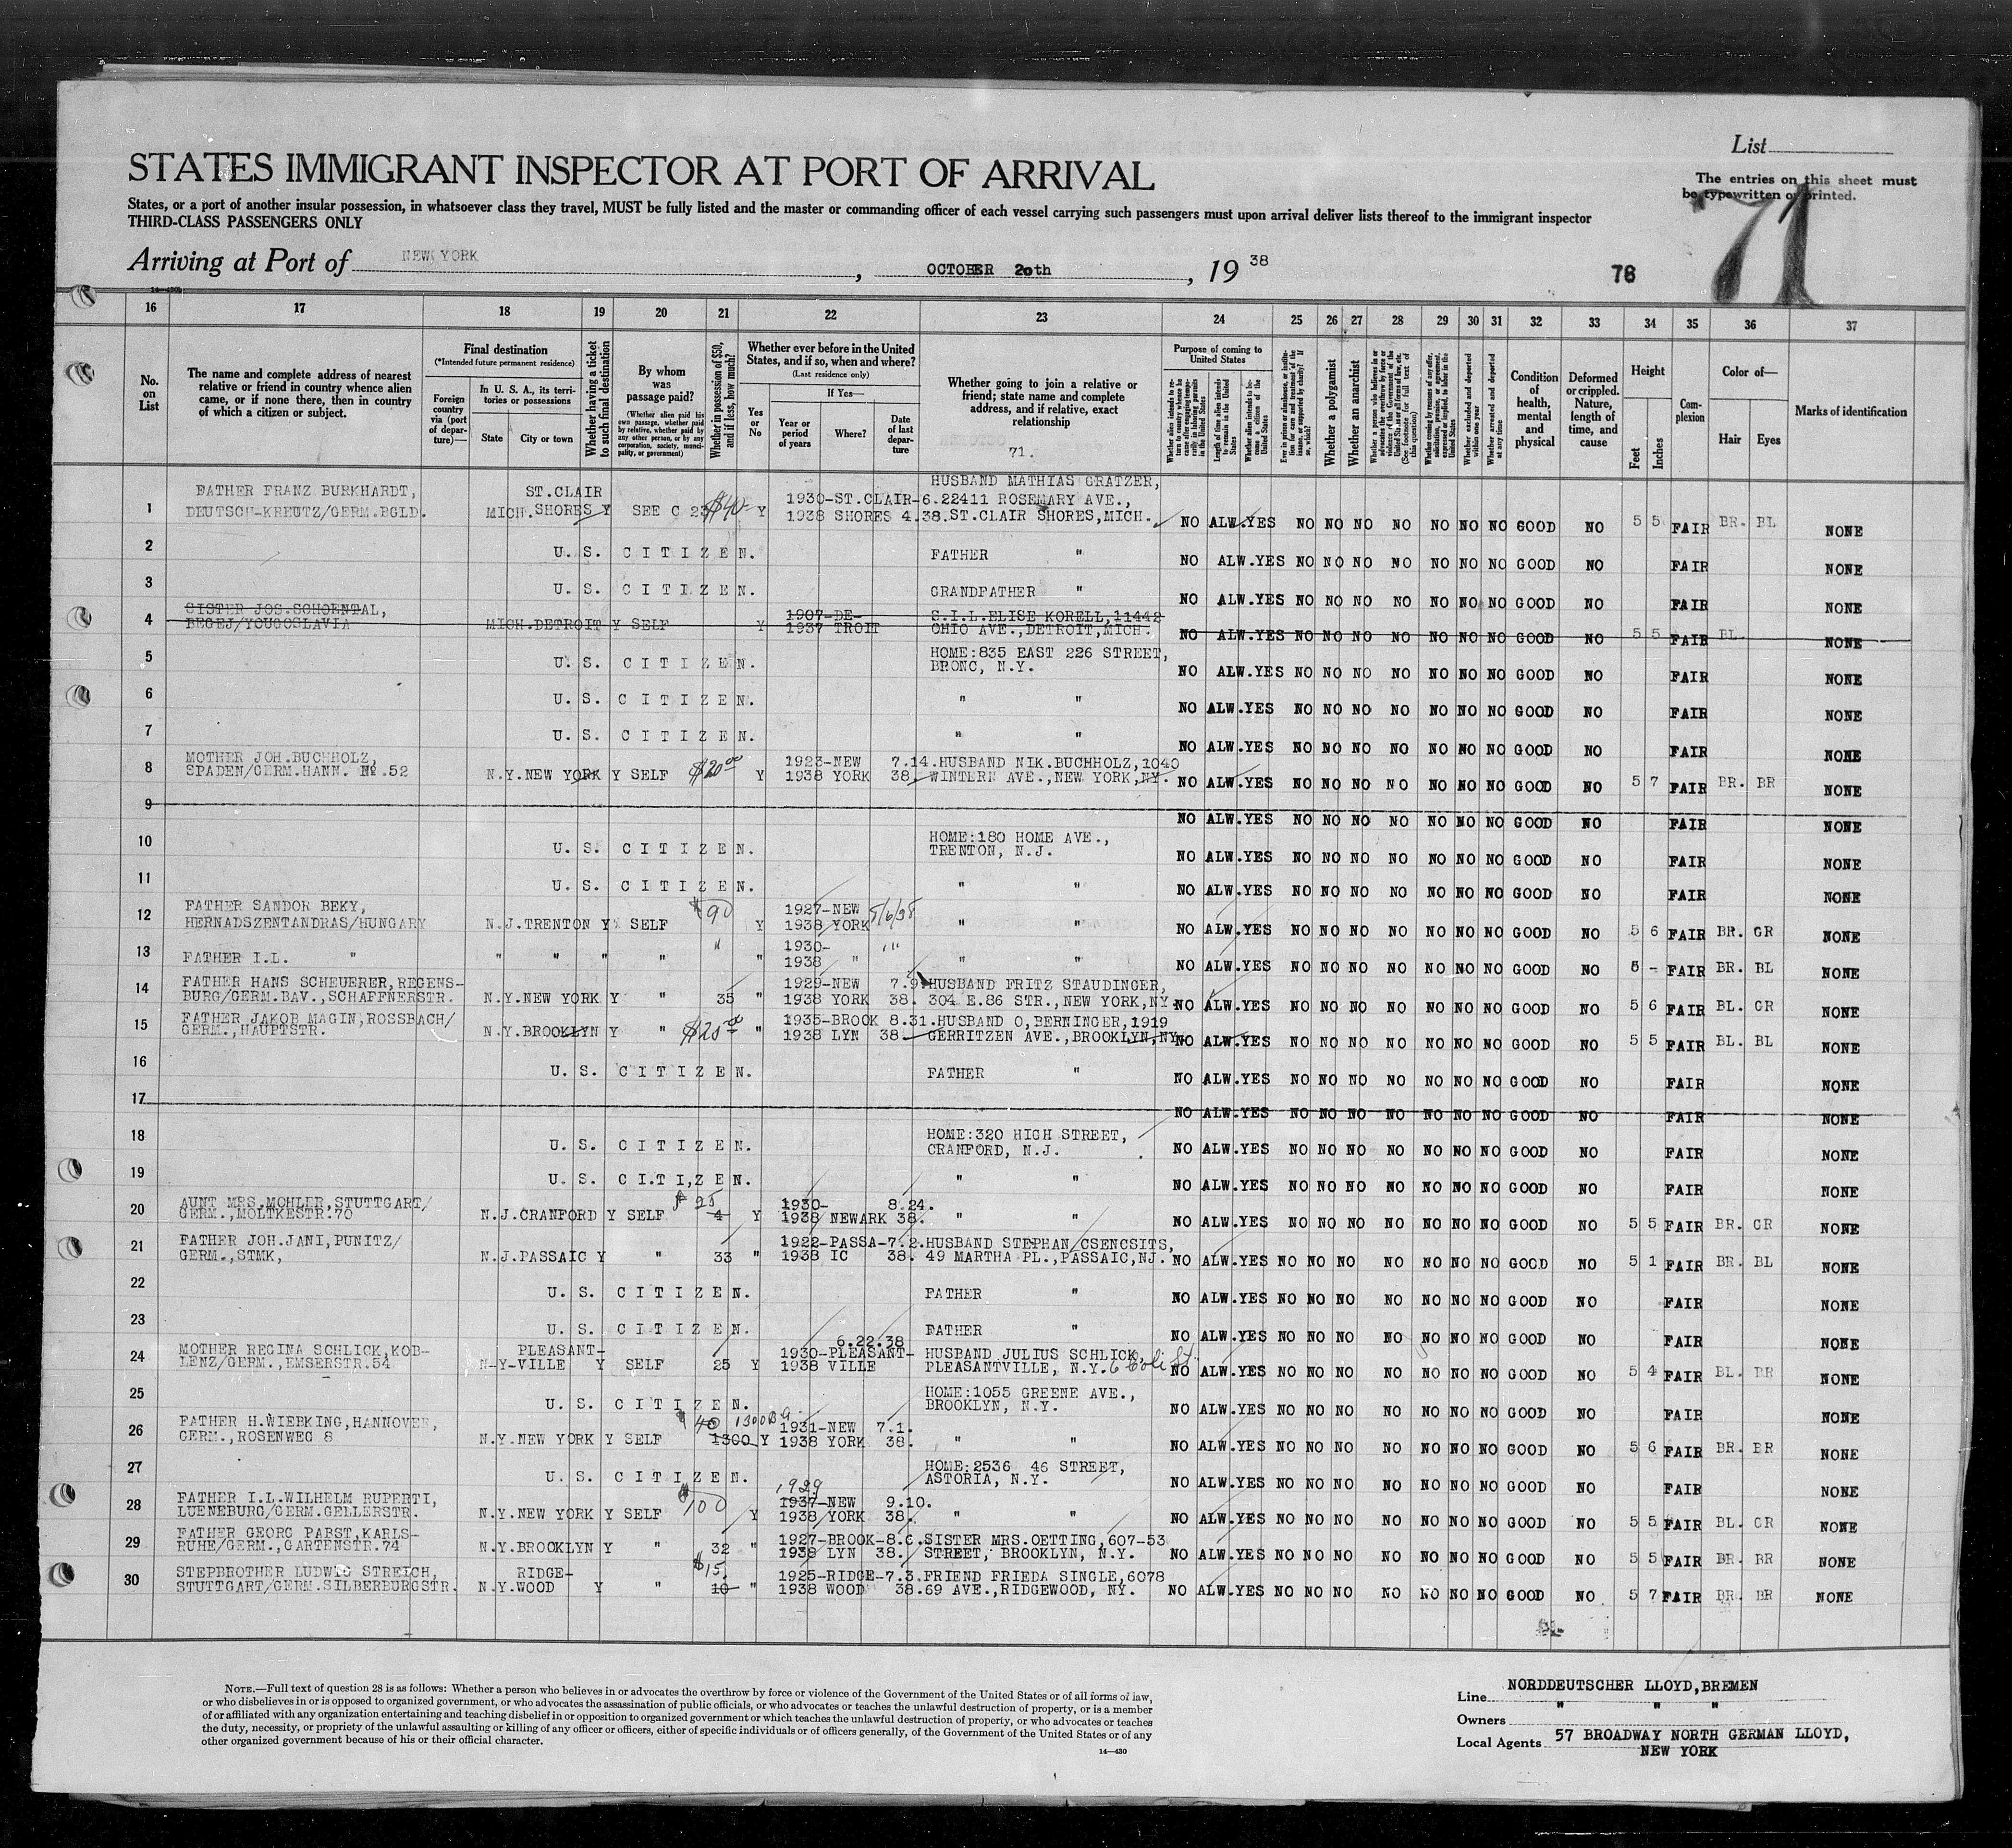 List
STATES IMMIGRANT INSPECTOR AT PORT OF ARRIVAL
The entries on this sheet must
be typewritten or printed.
States, or a port of another insular possession, in whatsoever class they travel, MUST be fully listed and the master or commanding officer of each vessel carrying such passengers must upon arrival deliver lists thereof to the immigrant inspector
THIRD-CLASS PASSENGERS ONLY
71
Arriving at Port of NEW YORK, OCTOBER 20th, 19 38
76
16 17 18 19 20 21 22 23 24 25 26 27 28 29 30 31 32 33 34 35 36 37
No. on List
The name and complete address of nearest relative or friend in country whence alien came, or if none there, then in country of which a citizen or subject.
Final destination
(*Intended future permanent residence)
Foreign country via (port of departure)—
In U. S. A., its territories or possessions
State
City or town
Whether having a ticket to such final destination
By whom was passage paid?
(Whether alien paid his own passage, whether paid by relative, whether paid by any other person, or by any corporation, society, municipality, or government)
Whether in possession of $50, and if less, how much?
Whether ever before in the United States, and if so, when and where?
(Last residence only)
Yes or No
If Yes—
Year or period of years
Where?
Date of last departure
Whether going to join a relative or friend; state name and complete address, and if relative, exact relationship
71.
Purpose of coming to United States
Whether a polygamist
Whether an anarchist
Condition of health, mental and physical
Deformed or crippled. Nature, length of time, and cause
Height
Feet
Inches
Complexion
Color of—
Hair
Eyes
Marks of identification
HUSBAND MATHIAS GRATZER,
FATHER FRANZ BURKHARDT, ST.CLAIR 1930-ST.CLAIR-6.22411 ROSEMARY AVE.,
1 DEUTSCH-KREUTZ/GERM.BGLD. MICH. SHORES Y SEE C 23 $40- Y 1938 SHORES 4.38. ST.CLAIR SHORES,MICH. NO ALW.YES NO NO NO NO NO NO NO GOOD NO 5 5 FAIR BR. BL NONE
2 U. S. CITIZEN. FATHER " NO ALW.YES NO NO NO NO NO NO NO GOOD NO FAIR NONE
3 U. S. CITIZEN. GRANDFATHER " NO ALW.YES NO NO NO NO NO NO NO GOOD NO FAIR NONE
SISTER JOS.SCHOENTAL, 1907-DE- S.I.L.ELISE KORELL,11442
4 BEGEJ/YOUGOSLAVIA MICH.DETROIT Y SELF Y 1937 TROIT OHIO AVE.,DETROIT,MICH. NO ALW.YES NO NO NO NO NO NO NO GOOD NO 5 5 FAIR BL NONE
HOME:835 EAST 226 STREET,
5 U. S. CITIZEN. BRONC, N.Y. NO ALW.YES NO NO NO NO NO NO NO GOOD NO FAIR NONE
6 U. S. CITIZEN. " " NO ALW.YES NO NO NO NO NO NO NO GOOD NO FAIR NONE
7 U. S. CITIZEN. " " NO ALW.YES NO NO NO NO NO NO NO GOOD NO FAIR NONE
MOTHER JOH.BUCHHOLZ, 1923-NEW 7.14.HUSBAND NIK.BUCHHOLZ,1040
8 SPADEN/GERM.HANN. No.52 N.Y.NEW YORK Y SELF $20.00 Y 1938 YORK 38. WINTERN AVE.,NEW YORK,NY. NO ALW.YES NO NO NO NO NO NO NO GOOD NO 5 7 FAIR BR. BR NONE
9 NO ALW.YES NO NO NO NO NO NO NO GOOD NO FAIR NONE
HOME:180 HOME AVE.,
10 U. S. CITIZEN. TRENTON, N.J. NO ALW.YES NO NO NO NO NO NO NO GOOD NO FAIR NONE
11 U. S. CITIZEN. " " NO ALW.YES NO NO NO NO NO NO NO GOOD NO FAIR NONE
FATHER SANDOR BEKY, $90 1927-NEW 5/6/38
12 HERNADSZENTANDRAS/HUNGARY N.J.TRENTON Y SELF Y 1938 YORK " " NO ALW.YES NO NO NO NO NO NO NO GOOD NO 5 6 FAIR BR. GR NONE
" 1930- "
13 FATHER I.L. " " " " " " 1938 " " " NO ALW.YES NO NO NO NO NO NO NO GOOD NO 5 - FAIR BR. BL NONE
FATHER HANS SCHEUERER,REGENS- 1929-NEW 7.9 HUSBAND FRITZ STAUDINGER,
14 BURG/GERM.BAV.,SCHAFFNERSTR. N.Y.NEW YORK Y " 35 " 1938 YORK 38. 304 E.86 STR.,NEW YORK,NY. NO ALW.YES NO NO NO NO NO NO NO GOOD NO 5 6 FAIR BL. GR NONE
FATHER JAKOB MAGIN,ROSSBACH/ 1935-BROOK 8.31.HUSBAND O,BERNINGER,1919
15 GERM.,HAUPTSTR. N.Y.BROOKLYN Y " $20.00 " 1938 LYN 38. GERRITZEN AVE.,BROOKLYN,NY. NO ALW.YES NO NO NO NO NO NO NO GOOD NO 5 5 FAIR BL. BL NONE
16 U. S. CITIZEN. FATHER " NO ALW.YES NO NO NO NO NO NO NO GOOD NO FAIR NONE
17 NO ALW.YES NO NO NO NO NO NO NO GOOD NO FAIR NONE
HOME:320 HIGH STREET,
18 U. S. CITIZEN. CRANFORD, N.J. NO ALW.YES NO NO NO NO NO NO NO GOOD NO FAIR NONE
19 U. S. CITIZEN. " " NO ALW.YES NO NO NO NO NO NO NO GOOD NO FAIR NONE
AUNT MRS.MOHLER,STUTTGART/ $25 1930- 8.24.
20 GERM.,MOLTKESTR.70 N.J.CRANFORD Y SELF 4 Y 1938 NEWARK 38. " " NO ALW.YES NO NO NO NO NO NO NO GOOD NO 5 5 FAIR BR. GR NONE
FATHER JOH.JANI,PUNITZ/ 1922-PASSA-7.2.HUSBAND STEPHAN CSENCSITS,
21 GERM.,STMK, N.J.PASSAIC Y " 33 " 1938 IC 38. 49 MARTHA PL.,PASSAIC,NJ. NO ALW.YES NO NO NO NO NO NO NO GOOD NO 5 1 FAIR BR. BL NONE
22 U. S. CITIZEN. FATHER " NO ALW.YES NO NO NO NO NO NO NO GOOD NO FAIR NONE
23 U. S. CITIZEN. FATHER " NO ALW.YES NO NO NO NO NO NO NO GOOD NO FAIR NONE
6.22.38
MOTHER REGINA SCHLICK,KOB- PLEASANT- 1930-PLEASANT- HUSBAND JULIUS SCHLICK
24 LENZ/GERM.,EMSERSTR.54 N-Y-VILLE Y SELF 25 Y 1938 VILLE PLEASANTVILLE, N.Y. NO ALW.YES NO NO NO NO NO NO NO GOOD NO 5 4 FAIR BL. BR NONE
HOME:1055 GREENE AVE.,
25 U. S. CITIZEN. BROOKLYN, N.Y. NO ALW.YES NO NO NO NO NO NO NO GOOD NO FAIR NONE
FATHER H.WIEBKING,HANNOVER, $40 1931-NEW 7.1.
26 GERM.,ROSENWEG 8 N.Y.NEW YORK Y SELF 1300 Y 1938 YORK 38. " " NO ALW.YES NO NO NO NO NO NO NO GOOD NO 5 6 FAIR BR. BR NONE
HOME:2536 46 STREET,
27 U. S. CITIZEN. ASTORIA, N.Y. NO ALW.YES NO NO NO NO NO NO NO GOOD NO FAIR NONE
1929
FATHER I.L.WILHELM RUPERTI, $100 1937-NEW 9.10.
28 LUENEBURG/GERM.GELLERSTR. N.Y.NEW YORK Y SELF Y 1938 YORK 38. " " NO ALW.YES NO NO NO NO NO NO NO GOOD NO 5 5 FAIR BL. GR NONE
FATHER GEORG PABST,KARLS- 1927-BROOK-8.6.SISTER MRS.OETTING,607-53
29 RUHE/GERM.,GARTENSTR.74 N.Y.BROOKLYN Y " 32 " 1938 LYN 38. STREET, BROOKLYN, N.Y. NO ALW.YES NO NO NO NO NO NO NO GOOD NO 5 5 FAIR BR. BR NONE
STEPBROTHER LUDWIG STREICH, RIDGE- $15. 1925-RIDGE-7.3.FRIEND FRIEDA SINGLE,6078
30 STUTTGART/GERM.SILBERBURGSTR. N.Y.WOOD Y " 10 " 1938 WOOD 38. 69 AVE.,RIDGEWOOD, NY. NO ALW.YES NO NO NO NO NO NO NO GOOD NO 5 7 FAIR BR. BR NONE
NOTE.—Full text of question 28 is as follows: Whether a person who believes in or advocates the overthrow by force or violence of the Government of the United States or of all forms of law,
or who disbelieves in or is opposed to organized government, or who advocates the assassination of public officials, or who advocates or teaches the unlawful destruction of property, or is a member
of or affiliated with any organization entertaining and teaching disbelief in or opposition to organized government or which teaches the unlawful destruction of property, or who advocates or teaches
the duty, necessity, or propriety of the unlawful assaulting or killing of any officer or officers, either of specific individuals or of officers generally, of the Government of the United States or of any
other organized government because of his or their official character.
14—430
NORDDEUTSCHER LLOYD,BREMEN
Line " " "
Owners
Local Agents 57 BROADWAY NORTH GERMAN LLOYD,
NEW YORK